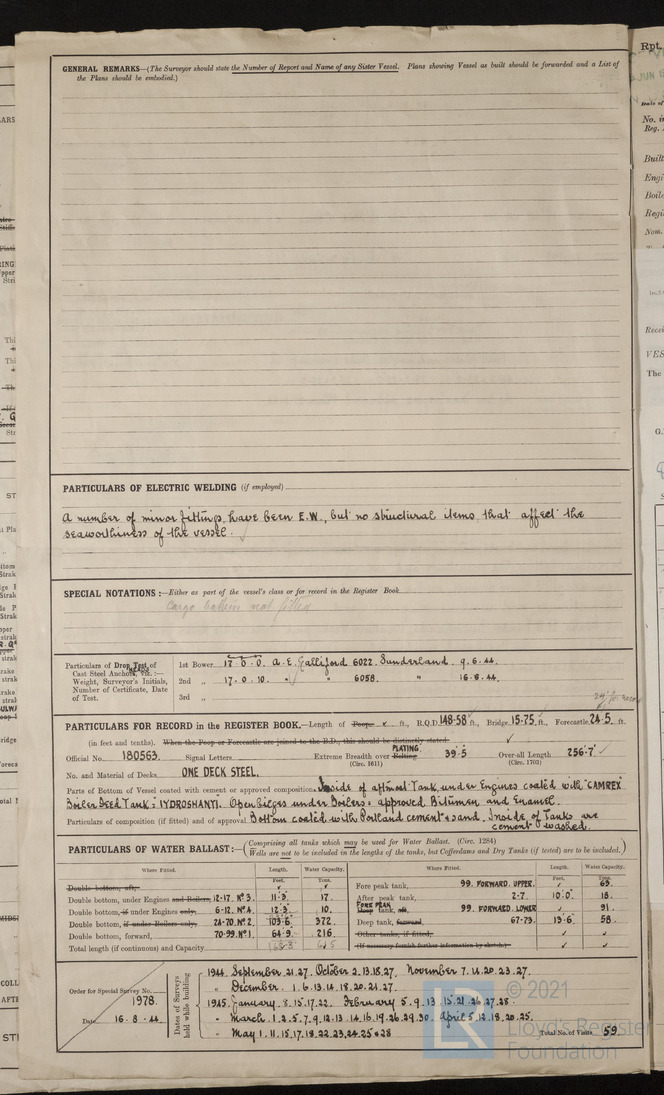 GENERAL REMARKS—(The Surveyor should state the Number of Report and Name of any Sister Vessel. Plans showing Vessel as built should be forwarded and a List of
the Plans should be embodied.)
PARTICULARS OF ELECTRIC WELDING (if employed)
A number of minor fittings, have been E.W., but no structural items, that affect the
seaworthiness of the vessel.
SPECIAL NOTATIONS:—Either as part of the vessel's class or for record in the Register Book
Cargo battens not fitted
Particulars of Drop Test of
Cast Steel Anchors, viz.:—
Weight, Surveyor's Initials,
Number of Certificate, Date
of Test.
HEADS
1st Bower 17.0.0. A.E. Galliford 6022. Sunderland 9.6.44.
2nd „ 17.0.10. " 6058. " 16.8.44.
3rd „
PARTICULARS FOR RECORD in the REGISTER BOOK.—Length of Poop x ft., R.Q.D. 148.58 ft., Bridge 15.75 ft., Forecastle 24.5 ft.
(in feet and tenths). When the Poop or Forecastle are joined to the B.D., this should be distinctly stated.
Official No. 180563. Signal Letters Extreme Breadth over Belting PLATING. 39.5 Over-all Length 256.7
(Circ. 1611) (Circ. 1703)
No. and Material of Decks ONE DECK STEEL.
Parts of Bottom of Vessel coated with cement or approved composition. Inside of aftmost Tank under Engines coated with "CAMREX"
Boiler Feed Tank: Open bilges under Boilers = approved Bitumen and Enamel.
Particulars of composition (if fitted) and of approval. Bottom coated with Portland cement & sand. Inside of Tanks are
cement washed.
PARTICULARS OF WATER BALLAST:— (Comprising all tanks which may be used for Water Ballast. (Circ. 1284)
Wells are not to be included in the lengths of the tanks, but Cofferdams and Dry Tanks (if tested) are to be included.)
Where Fitted. Length. Water Capacity. Where Fitted. Length. Water Capacity.
Feet. Tons. Feet. Tons.
Double bottom, aft, Fore peak tank, 99. FORWARD. UPPER. 63.
Double bottom, under Engines and Boilers, 12-17. Nº 3. 11.3 17. After peak tank, 2-7. 10.0 18.
Double bottom, if under Engines only, 6-12. Nº 4. 12.3 10. Deep tank, aft, FORE PEAK 99. FORWARD. LOWER 91.
Double bottom, if under Boilers only, 24-70. Nº 2. 103.6 372. Deep tank, forward, 67-73. 13.6 58.
Double bottom, forward, 70-99. Nº 1. 64.9 216. Other tanks, if fitted,
Total length (if continuous) and Capacity (If necessary furnish further information by sketch.)
Order for Special Survey No.
1978.
Date 16.8.44
Dates of Surveys
held while building
1944. September. 21. 27. October 2. 13. 18. 27. November 7. 14. 20. 23. 27.
" December. 1. 6. 13. 14. 18. 20. 21. 27.
1945. January. 8. 15. 17. 22. February 5. 9. 13. 15. 21. 26. 27. 28.
" March. 1. 2. 5. 7. 9. 12. 13. 14. 16. 19. 26. 29. 30. April 5. 12. 18. 20. 25.
" May 1. 11. 15. 17. 18. 22. 23. 24. 25 & 28
Total No. of Visits 59
© 2021
Lloyd's Register
Foundation
LR
Rpt.